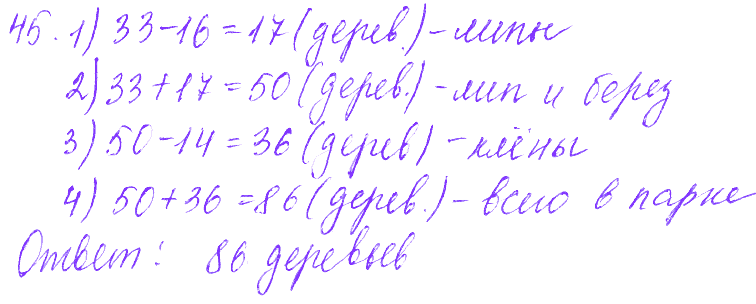 45. 1) 33-16=17 (дерев.) - липы
2) 33+17=50 (дерев.) - лип и берез
3) 50-14=36 (дерев) - клёны
4) 50+36=86 (дерев.) - всего в парке
Ответ: 86 деревьев